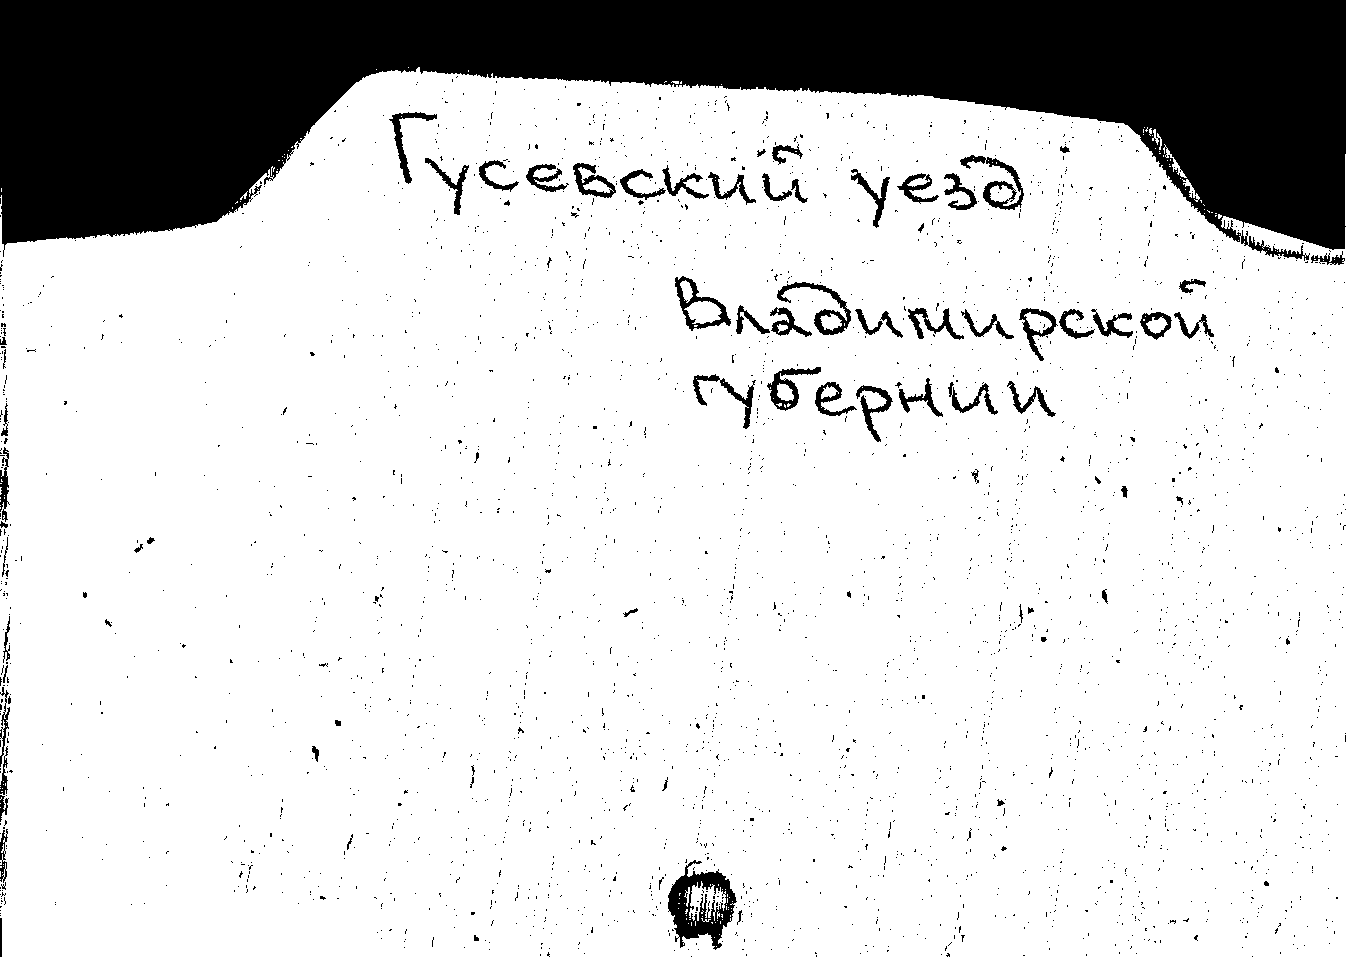 Гусевский уезд
Владимирской
губернии